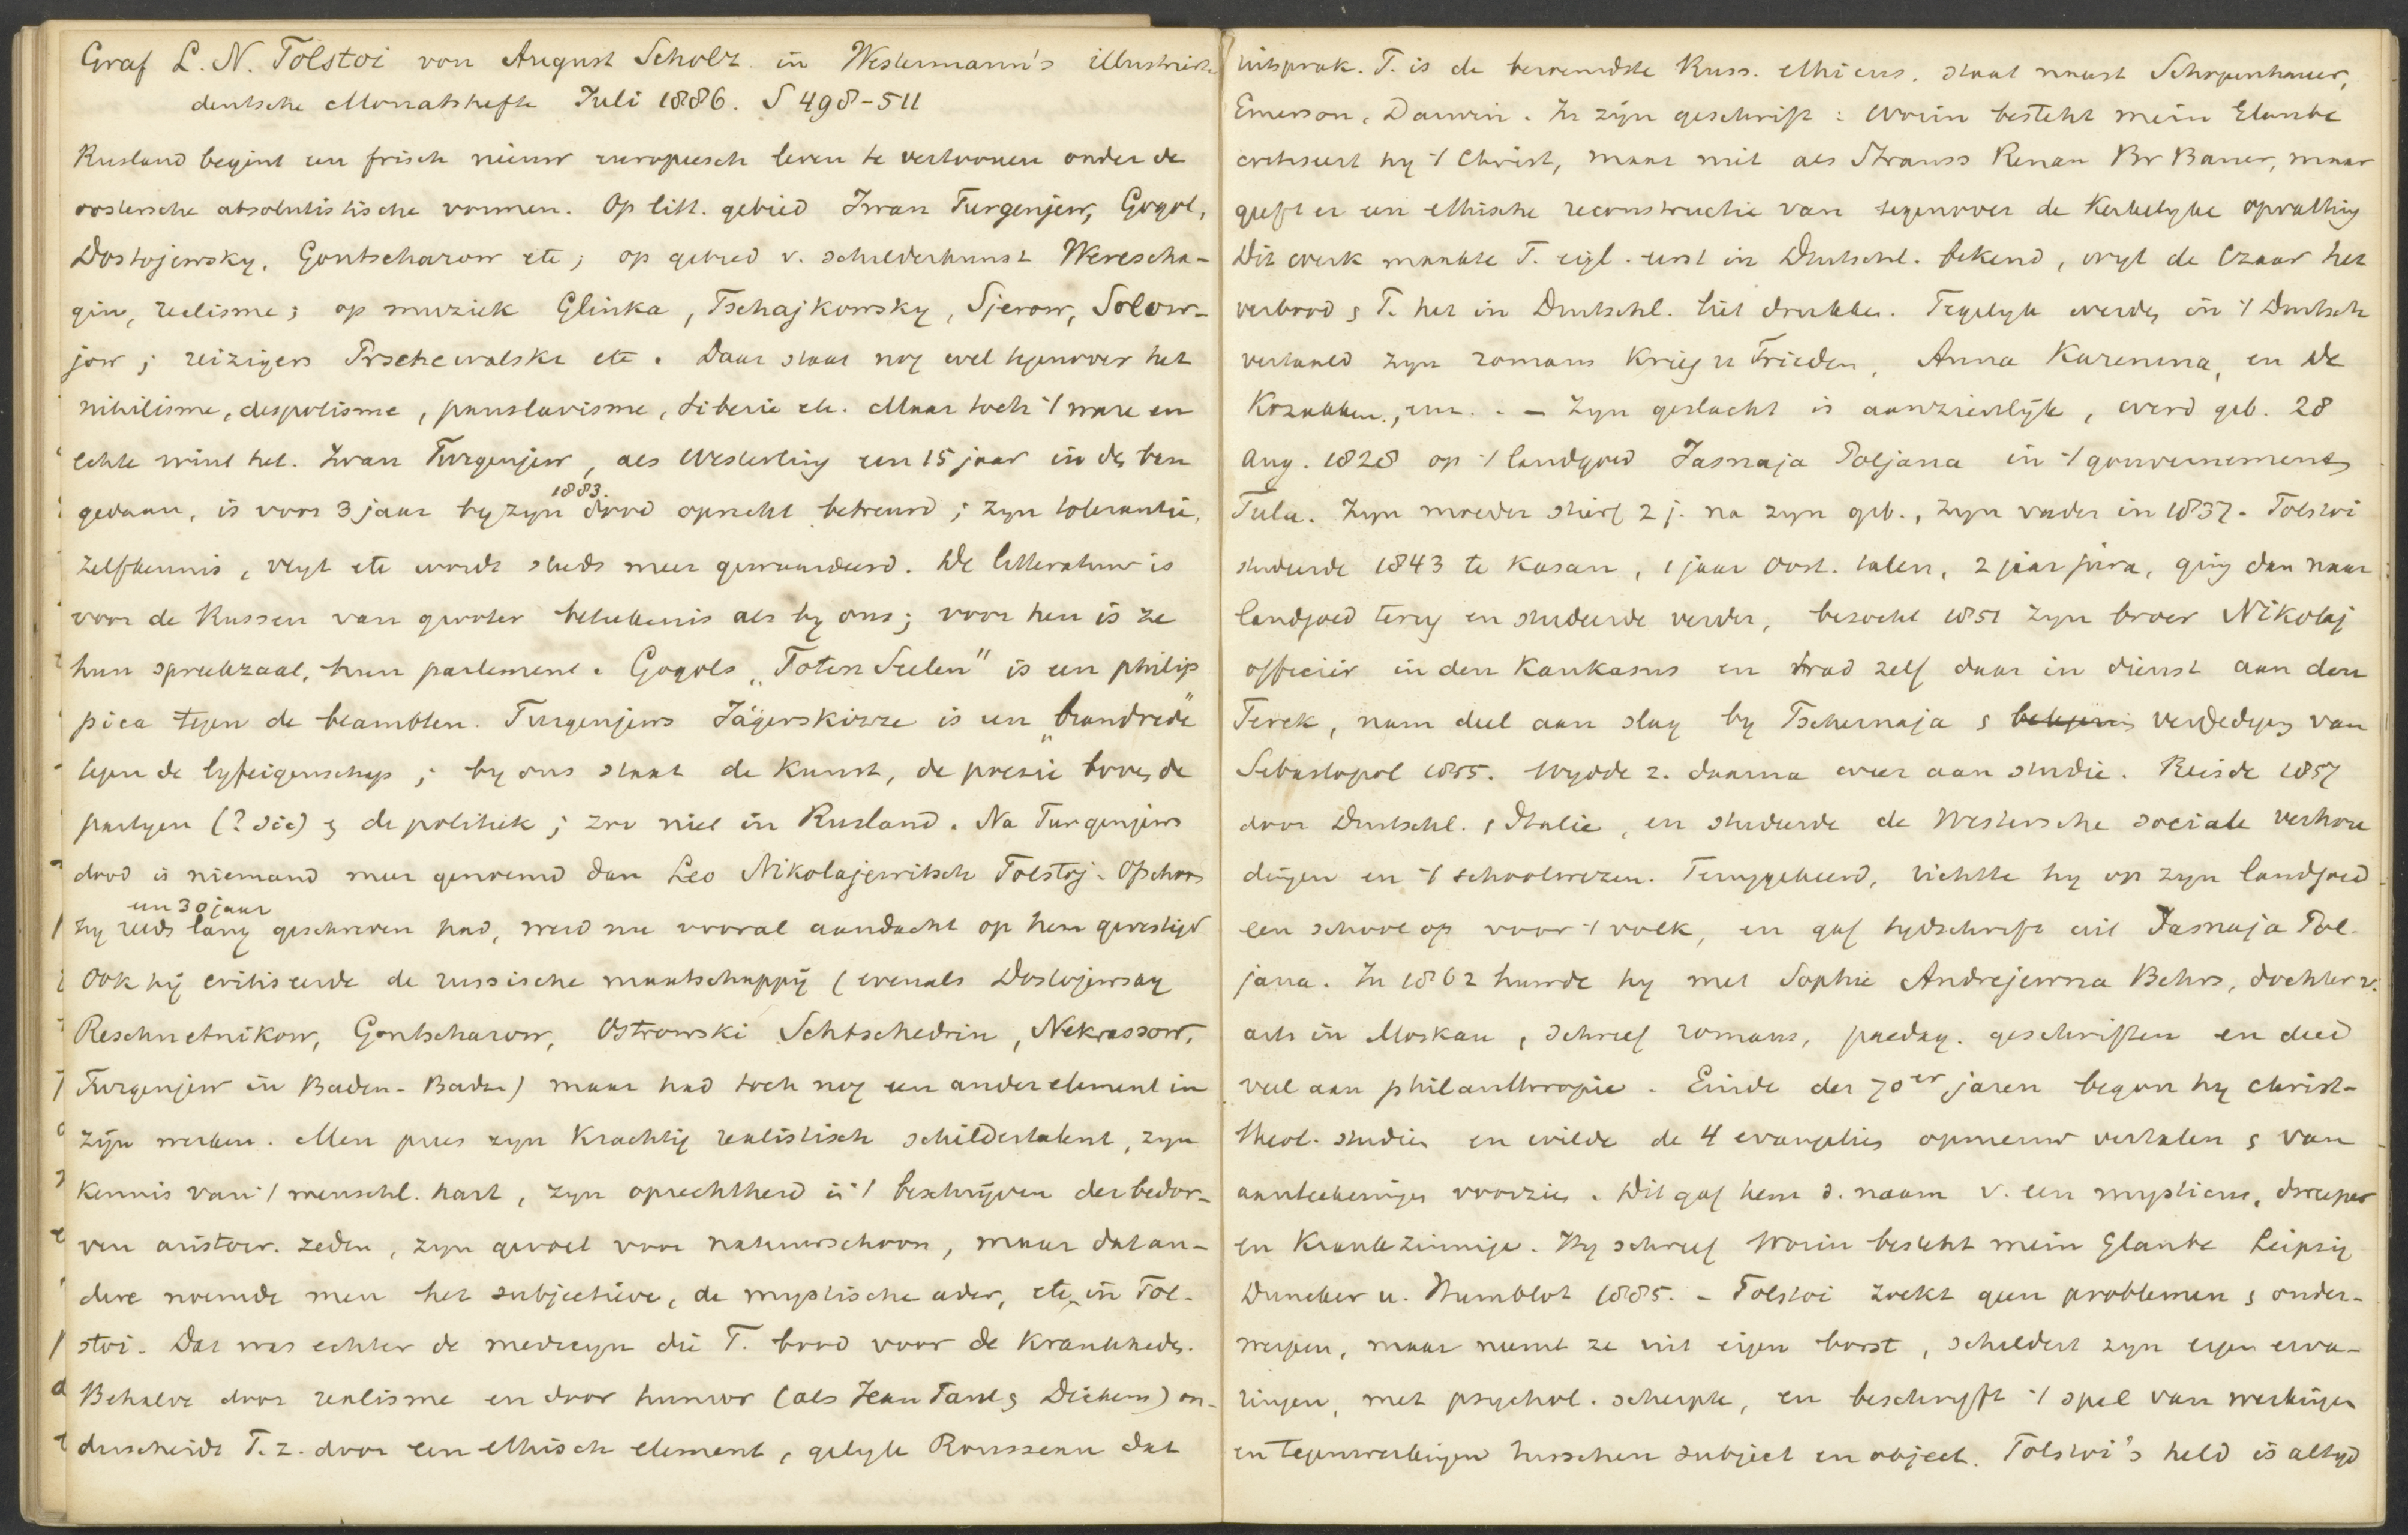 Graf L. N. Tolstoi von August Scholz in Westermann's illustrirte
deutsche Monatshefte Juli 1886. S 498-511
Rusland begint een frisch nieuw europeesch leven te vertoonen onder de
oostersche absolutistische vormen. Op litt. gebied Iwan Turgenjew, Gogol,
Dostojewsky, Gontscharow etc; op gebied v. schilderkunst Werescha-
gin, realisme; op muziek Glinka, Tschajkowsky, Sjerow, Solow-
jow; reizigers Prschewalski etc. Daar staat nog wel tegenover het
nihilisme, despotisme, panslavisme, Siberie etc. Maar toch 't ware en
echte wint het. Iwan Turgenjew, als Westerling een 15 jaar in den ban
gedaan, is voor 3 jaar by zyn 1883. dood oprecht betreurd; zyn tolerantie,
zelfkennis, vlyt etc wordt steeds meer gewaardeerd. De litteratuur is
voor de Russen van grooter beteekenis als by ons; voor hen is ze
hun spreekzaal, hun parlement. Gogols "Toten Seelen" is een philip
pica tegen de beambten. Turgenjews Jägerskizze is een "brandrede"
tegen de lyfeigenschap; by ons staat de kunst, de poesie boven de
partyen (? sic) en de politiek; zoo niet in Rusland. Na Turgenjews
dood is niemand meer genoemd dan Leo Nikolajewitsch Tolstoj. Ofschoon
een 30 jaar
hy reeds lang geschreven had, werd nu vooral aandacht op hem gevestigd
Ook hij critiseerde de russische maatschappij (evenals Dostojewsky
Reschnetnikow, Gontscharow, Ostrowski Schtschedrin, Nekrassow,
Turgenjew in Baden-Baden) maar had toch nog een ander element in
zijn werken. Men prees zyn krachtig realistisch schildertalent, zyn
kennis van 't menschl. hart, zyn oprechtheid in 't beschrijven der bedor-
ven aristocr. zeden, zyn gevoel voor natuurschoon, maar dat an-
dere noemde men het subjectieve, de mystische ader, etc in Tol-
stoi. Dat was echter de medicyn die T. bood voor de krankheden.
Behalve door realisme en door humor (als Jean Paul en Dickens) on-
derscheidt T. z. door een ethisch element, gelyk Rousseau dat
uitsprak. T. is de beroemdste Russ. ethicus. staat naast Schopenhauer,
Emerson, Darwin. In zijn geschrift: Worin besteht mein Glaube
critiseert hy 't Christ, maar niet als Strauss Renan Br Bauer, maar
geeft er een ethische reconstructie van tegenover de kerkelyke opvatting
Dit werk maakte T. eigl. eerst in Duitschl. bekend, wyl de Czaar het
verbood en T. het in Duitschl. liet drukken. Tegelyk werden in 't Duitsch
vertaald zyn romans Krieg u Frieden, Anna Karenina, en De
Kozakken, enz. . - Zyn geslacht is aanzienlijk, werd geb. 28
Aug. 1828 op 't landgoed Jasnaja Poljana in 't gouvernement
Tula. Zyn moeder stierf 2 j. na zyn geb., zyn vader in 1837. Tolstoi
studeerde 1843 te Kasan, 1 jaar Oost. talen, 2 jaar jura, ging dan naar
landgoed terug en studeerde verder, bezocht 1851 zyn broer Nikolaj
officier in den Kaukasus en trad zelf daar in dienst aan den
Terek, nam deel aan slag by Tschernaja en verdediging van
Sebastopol 1855. Wydde z. daarna weer aan studie. Reisde 1857
door Duitschl. en Italie, en studeerde de Westersche sociale verhou
dingen en 't schoolwezen. Teruggekeerd, richtte hy op zyn landgoed
een school op voor 't volk, en gaf tydschrift uit Jasnaja Pol-
jana. In 1862 huwde hy met Sophie Andrejewna Behrs, dochter v.
arts in Moskau, schreef romans, paedag. geschriften en deed
veel aan philanthropie. Einde der 70er jaren begon hy christ-
theol. studien en wilde de 4 evangelies opnieuw vertalen en van
aanteekeningen voorzien. Dit gaf hem d. naam v. een mysticus, dweeper
en krankzinnige. Hy schreef Worin besteht mein Glaube Leipzig
Duncker u. Humblot 1885. - Tolstoi zoekt geen problemen en onder-
werpen, maar neemt ze uit eigen borst, schildert zyn eigen erva-
ringen, met psychol. scherpte, en beschryft 't spel van werkingen
en tegenwerkingen tusschen subject en object. Tolstoi's held is altyd